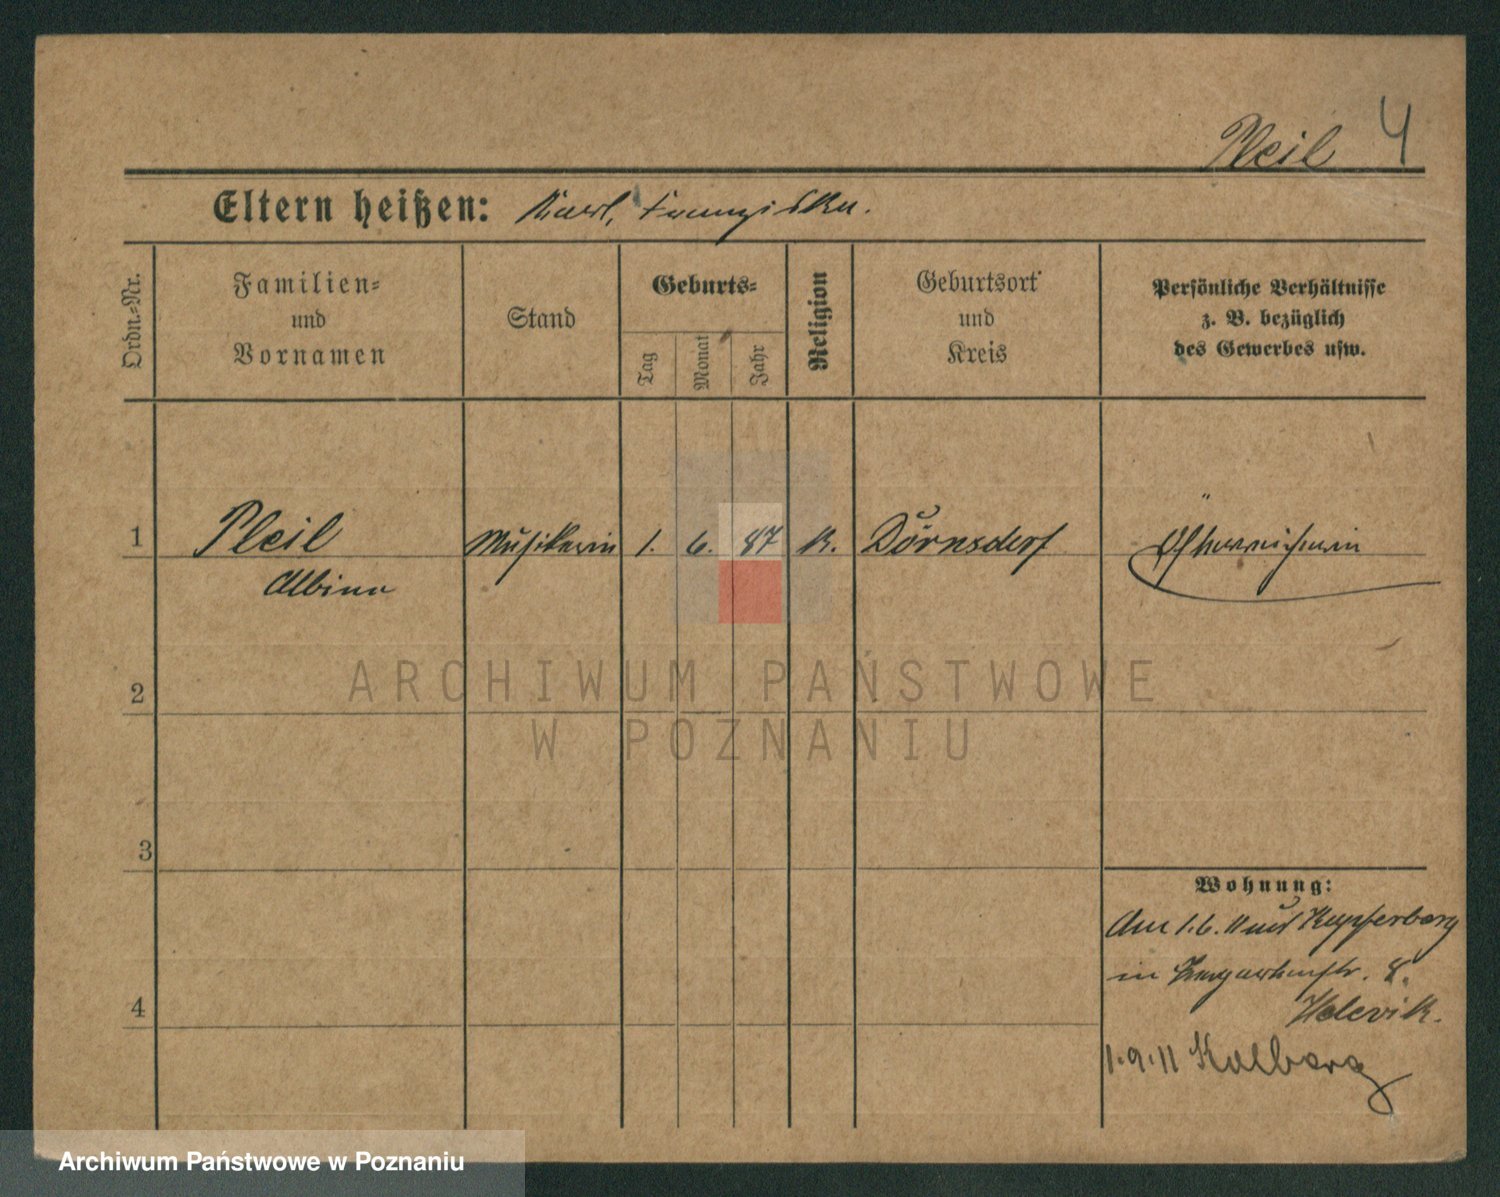 Pleil 4
Eltern heißen: Karl, Franziska.
Ordn.-Nr.
Familien-
und
Vornamen
Stand
Geburts-
Tag
Monat
Jahr
Religion
Geburtsort
und
Kreis
Persönliche Verhältnisse
z. B. bezüglich
des Gewerbes usw.
1 Pleil Musikerin 1. 6. 87 K. Dörnsdorf Österreicherin
Albina
ARCHIWUM PAŃSTWOWE
W POZNANIU
2
3
4
Wohnung:
Am 1.6.11 aus Kupferberg
in 8.
1.9.11 Kolberg
Archiwum Państwowe w Poznaniu